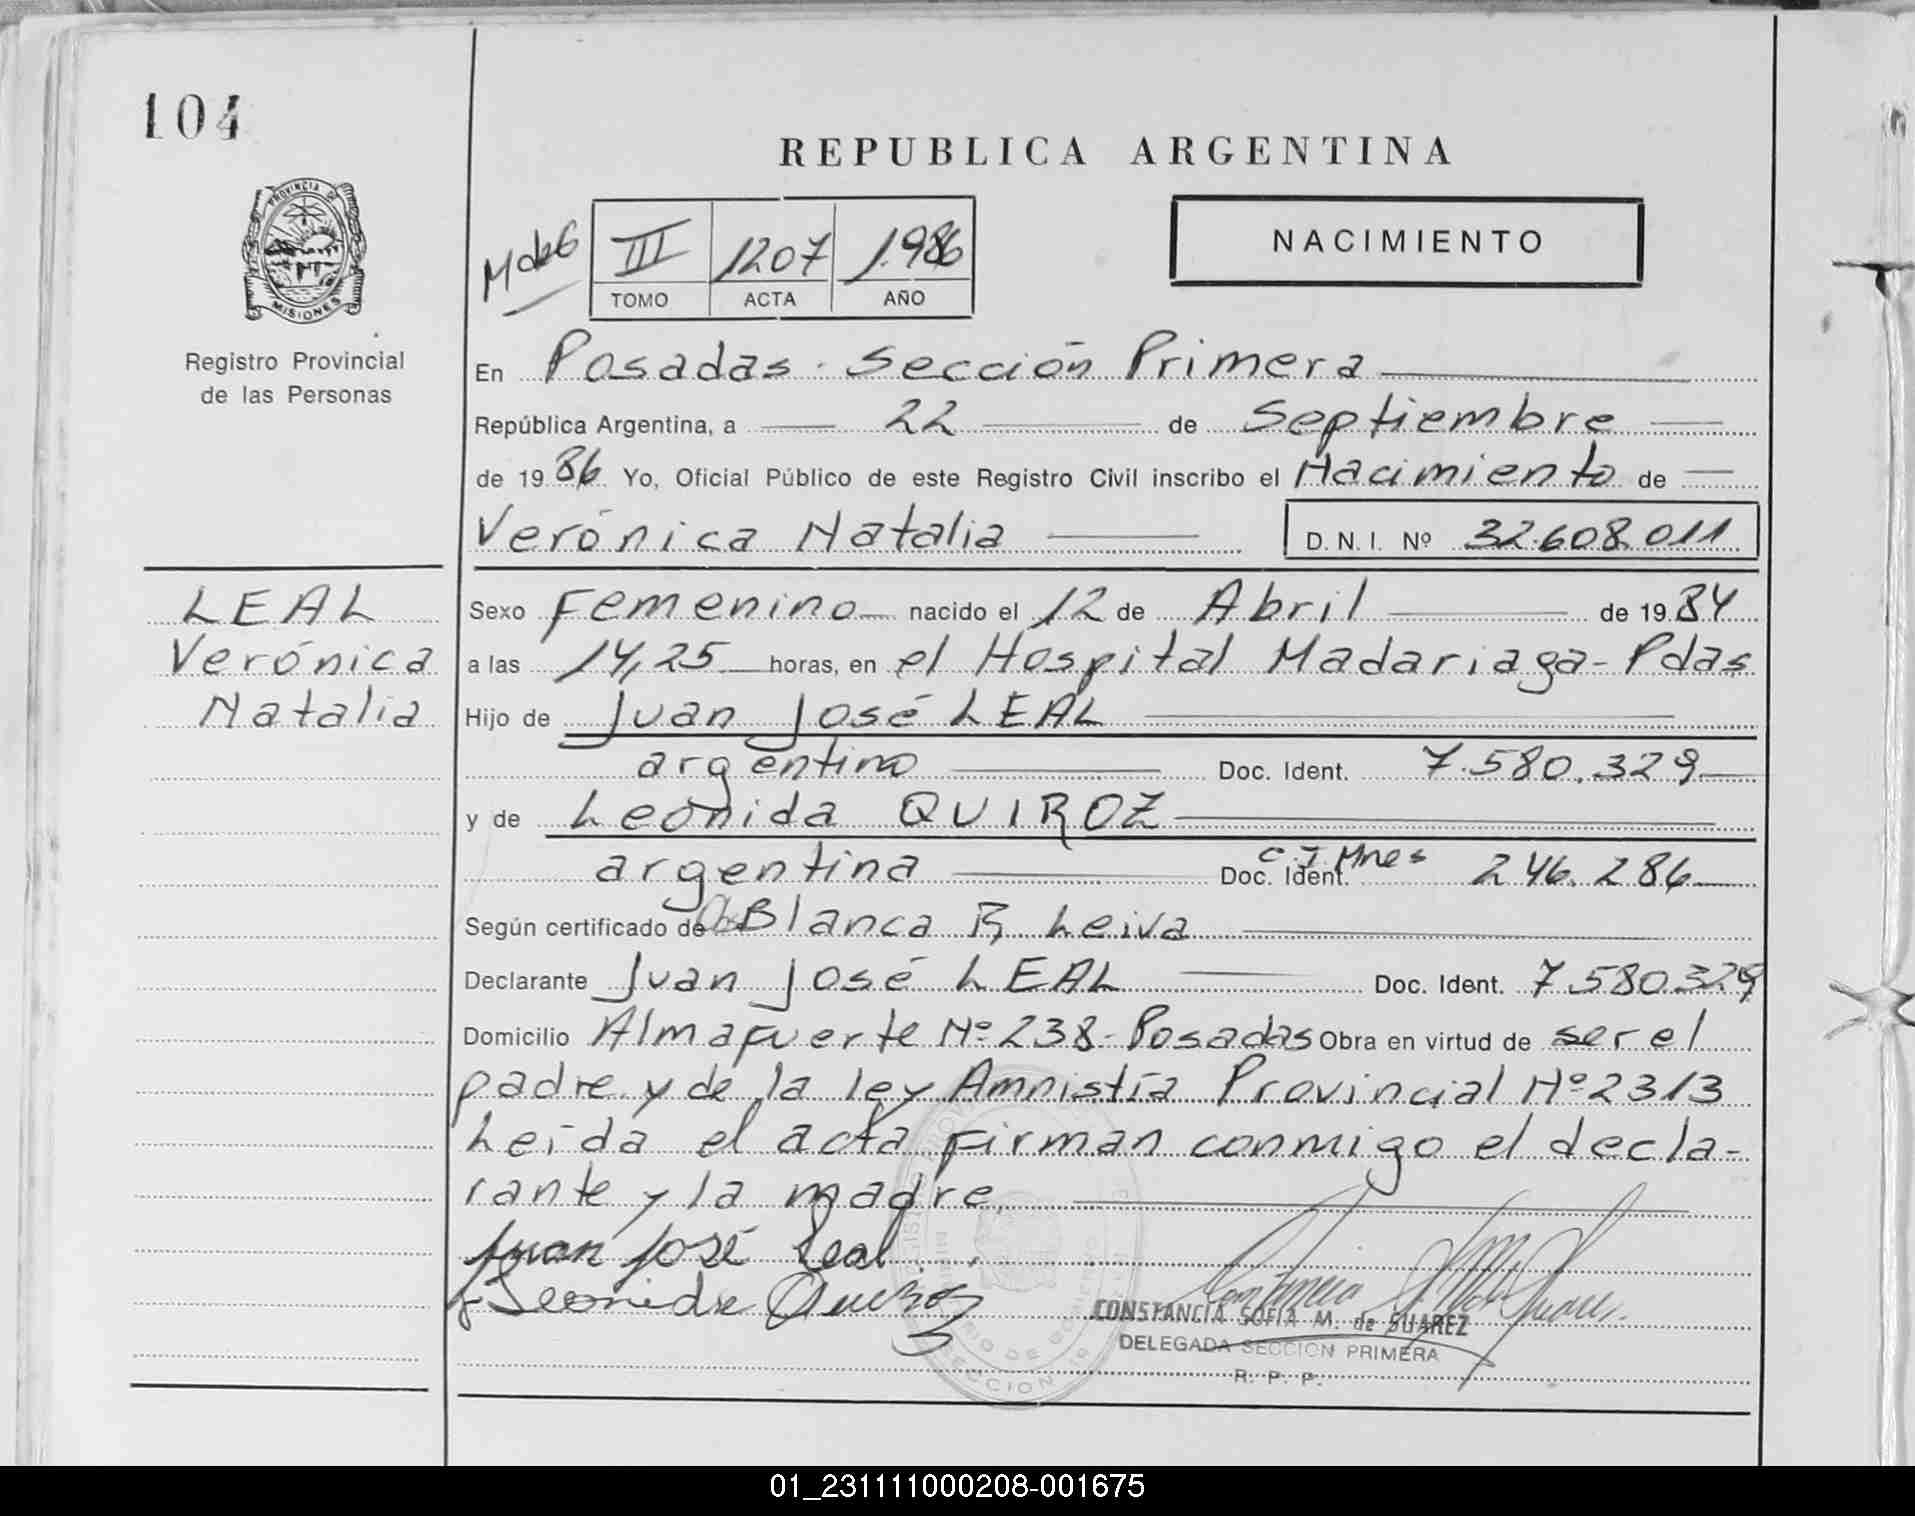 104
REPUBLICA ARGENTINA
PROVINCIA DE
MISIONES
Registro Provincial
de las Personas
III 1207 1.986
TOMO ACTA AÑO
NACIMIENTO
En Posadas - Sección Primera
República Argentina, a 22 de Septiembre
de 1986 Yo, Oficial Público de este Registro Civil inscribo el Nacimiento de
Verónica Natalia D.N.I. Nº 32.608.011
LEAL
Verónica
Natalia
Sexo Femenino nacido el 12 de Abril de 1984
a las 14,25 horas, en el Hospital Madariaga - Pdas
Hijo de Juan José LEAL
argentino Doc. Ident. 7.580.329
y de Leonida QUIROZ
argentina Doc. Ident. C.I. Mnes 246.286
Según certificado de Blanca R Leiva
Declarante Juan José LEAL Doc. Ident. 7.580.329
Domicilio Almafuerte Nº 238 - Posadas Obra en virtud de ser el
padre y de la ley Amnistía Provincial Nº 2313
Leída el acta firman conmigo el decla-
rante y la madre.
Juan José Leal
Leonida Quiroz
CONSTANCIA SOFIA M. de SUAREZ
DELEGADA SECCION PRIMERA
R. P. P.
01_231111000208-001675